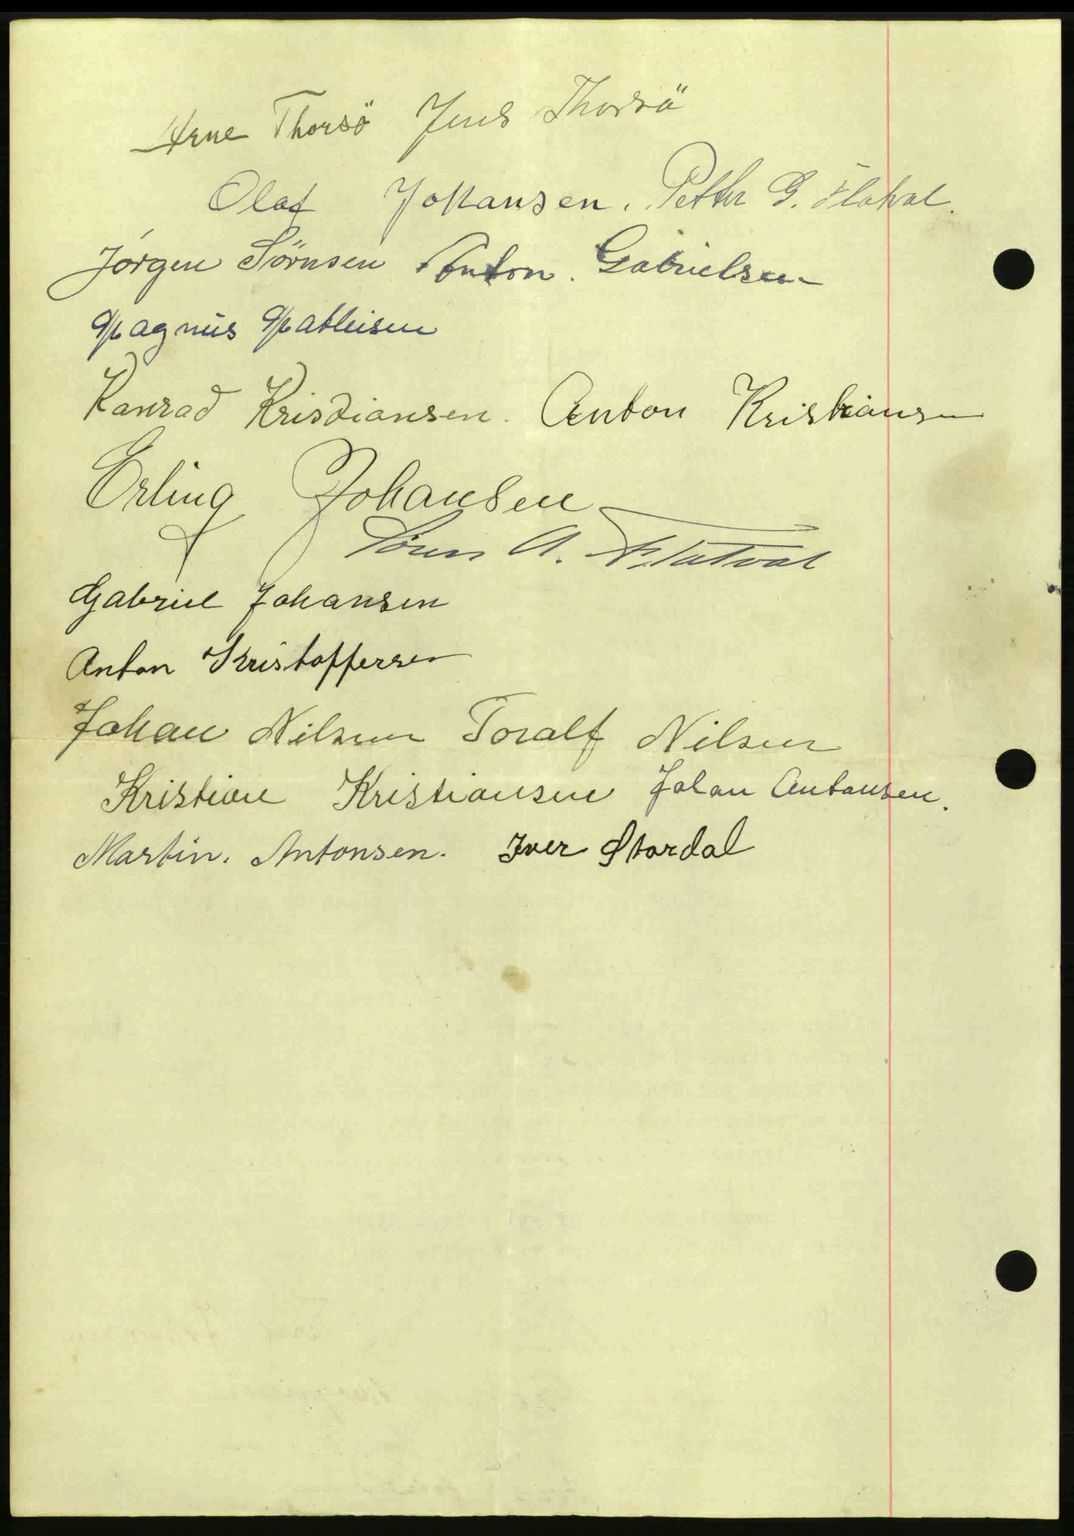 Arne Thorsö Jens Thorsö
Olaf Johansen. Petter G. Flatval.
Jörgen Sörnsen Anton. Gabrielsen
Magnus Mathisen
Konrad Kristiansen. Anton Kristiansen
Erling Johansen
Sören A. Flatval
Gabriel Johansen
Anton Kristoffersen
Johan Nilsen Toralf Nilsen
Kristian Kristiansen Johan Antonsen.
Martin. Antonsen. Iver Stordal